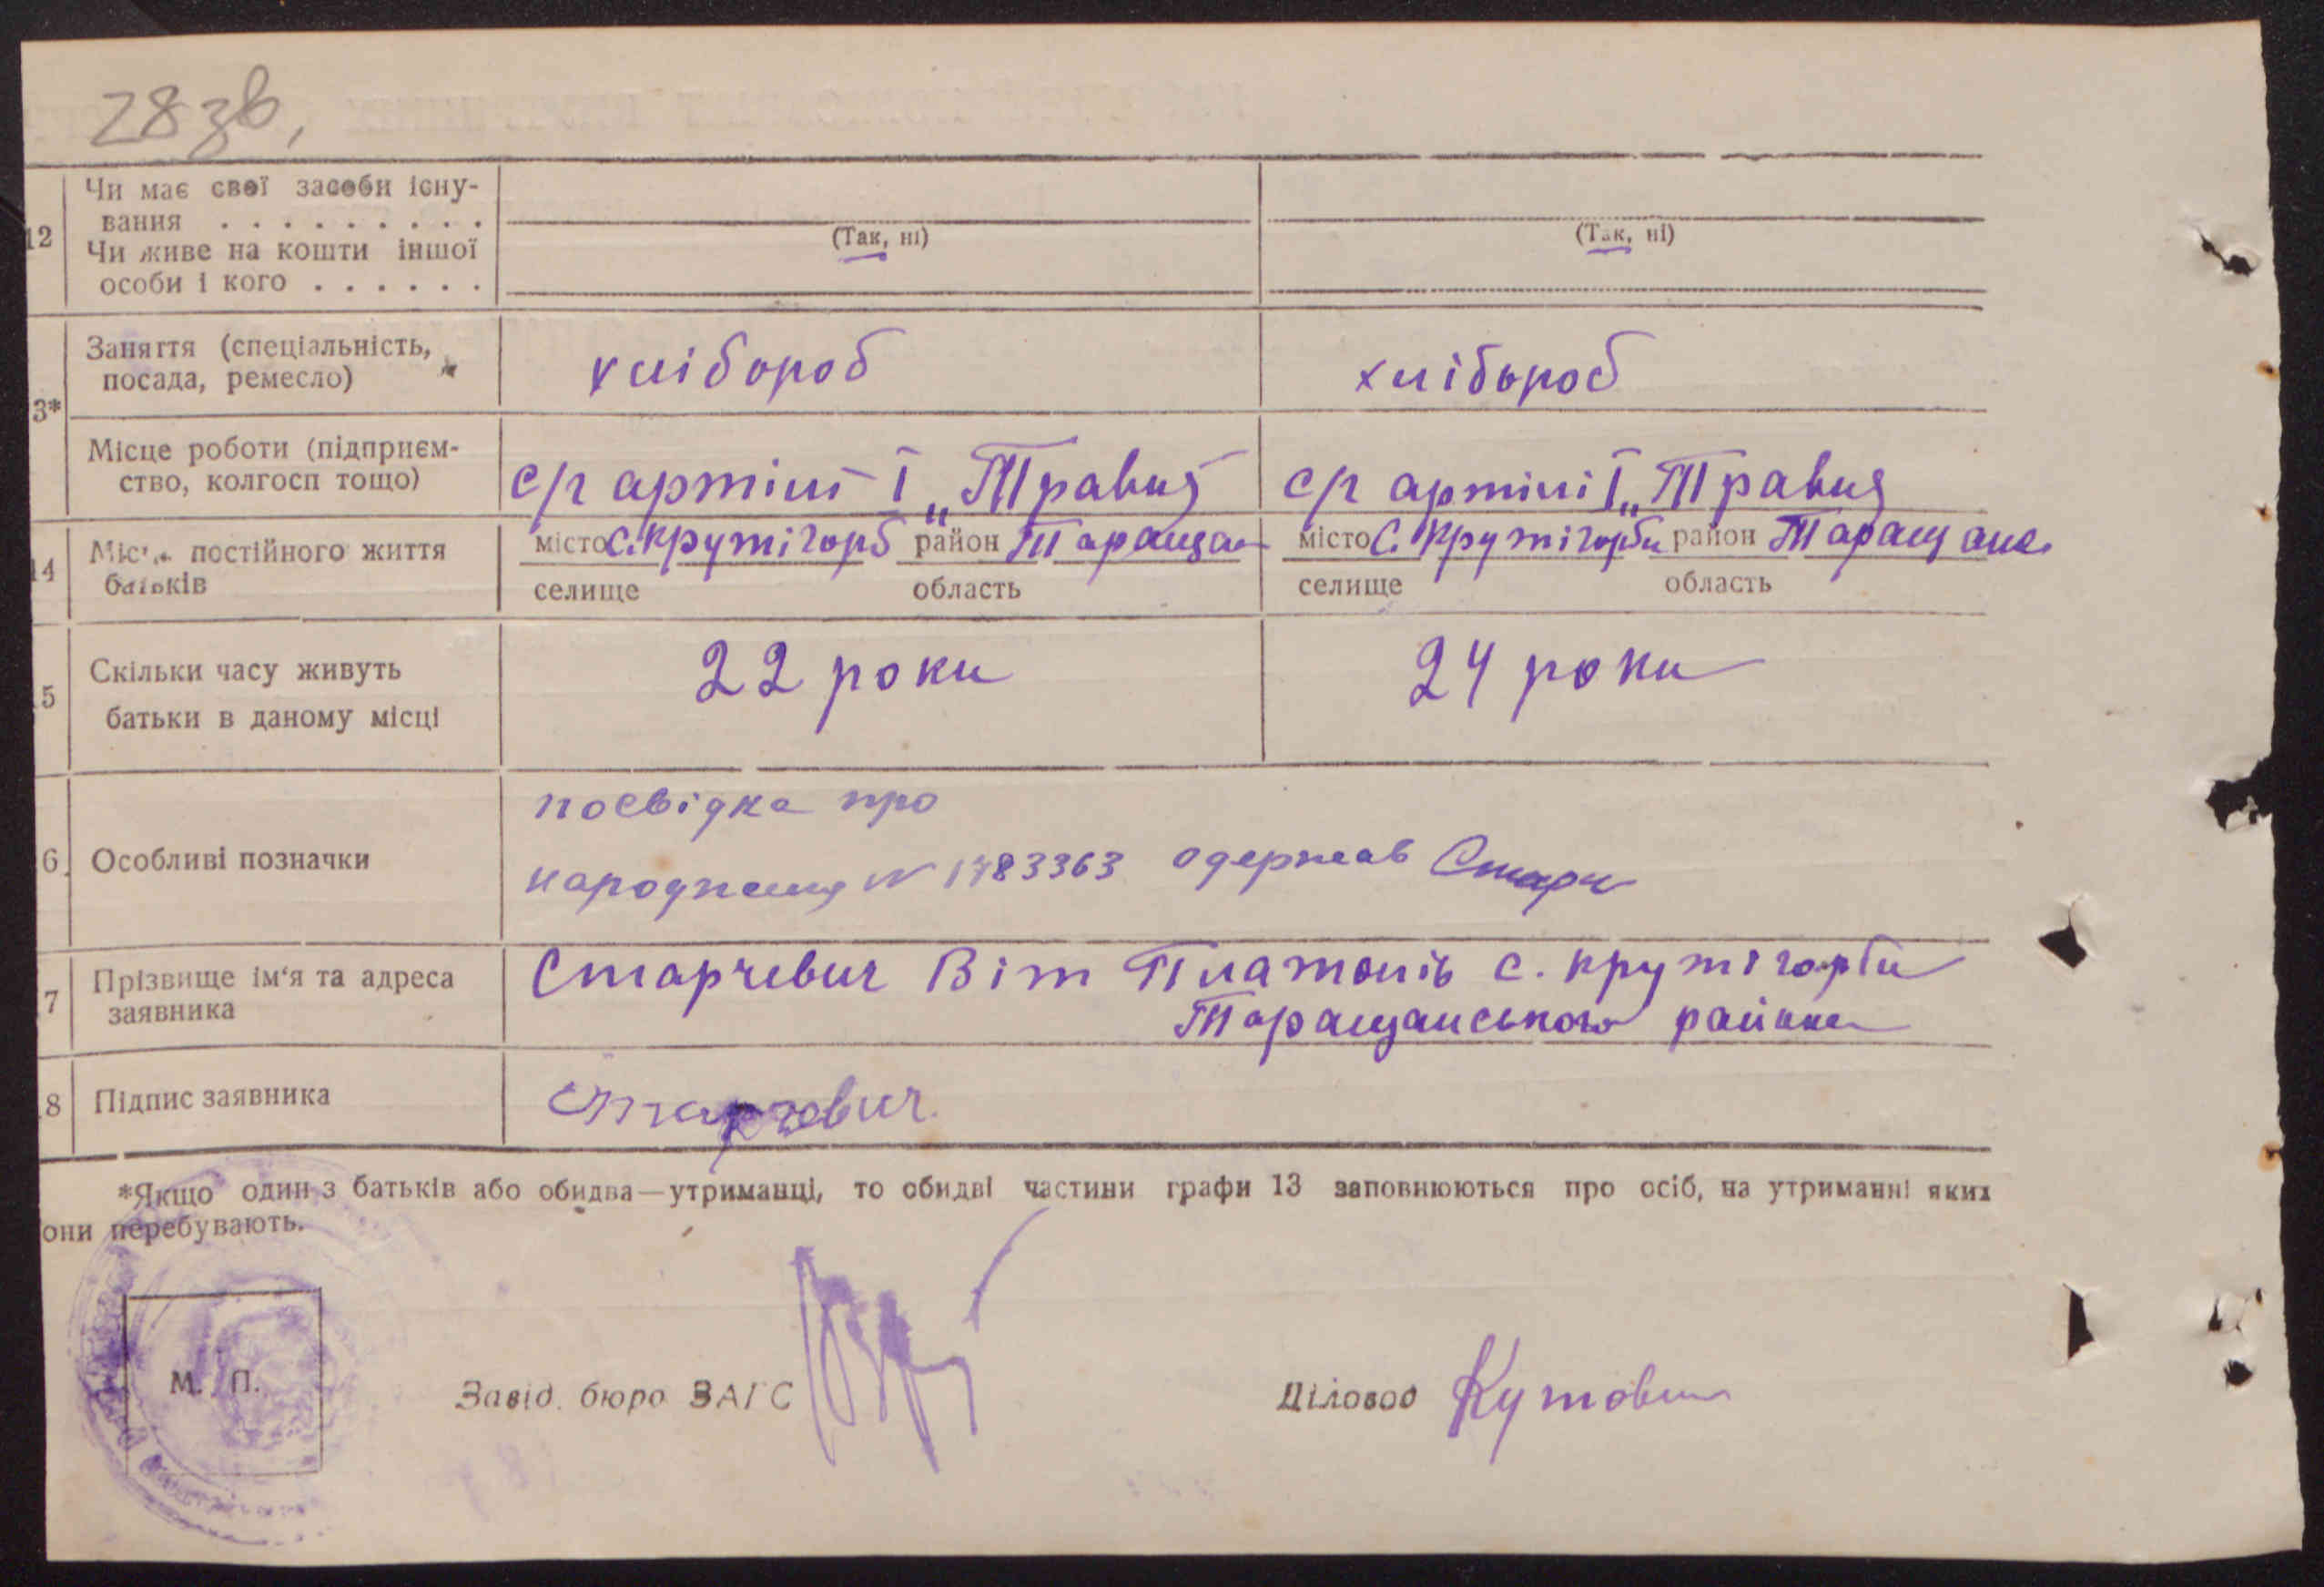 28 зв,
12 Чи має свої засоби існу-
вання . . . . . . . . .
(Так, ні) (Так, ні)
Чи живе на кошти іншої
особи і кого . . . . . .
3* Заняття (спеціальність,
посада, ремесло)
хлібороб хлібороб
Місце роботи (підприєм-
ство, колгосп тощо)
с/г артілі 1 „Травня с/г артілі 1 „Травня
14 Місце постійного життя
батьків
місто с. Крутігорб район Таращан місто с. Крутігорби район Таращанс.
селище область селище область
5 Скільки часу живуть
батьки в даному місці
22 роки 24 роки
6. Особливі позначки
посвідка про
народження N 1783363 одержав Старч
7 Прізвище ім'я та адреса
заявника
Старчевич Віт Платонів с. Крутігорби
Таращанського района
8 Підпис заявника
Старчевич.
*Якщо один з батьків або обидва—утриманці, то обидві частини графи 13 заповнюються про осіб, на утриманні яких
они перебувають.
М. П.
Завід. бюро ЗАГС
Діловод